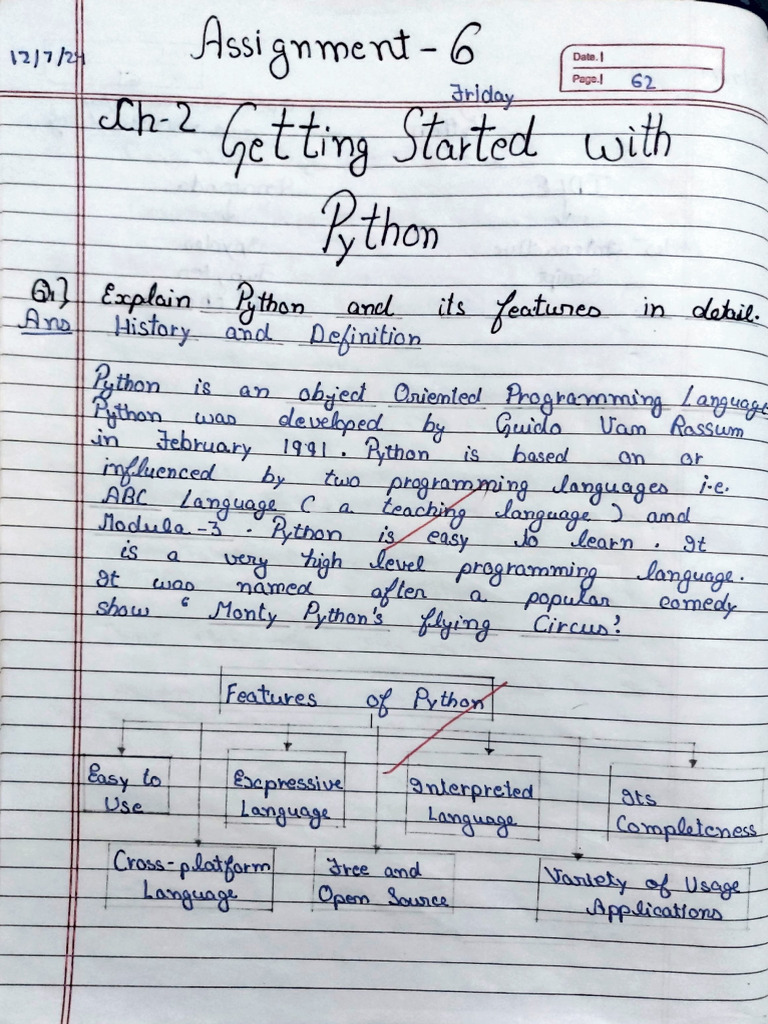 12/7/24
Assignment - 6
Date.
Page. 62
Friday
Ch-2 Getting Started with
Python
Q1} Explain Python and its features in detail.
Ans History and Definition
Python is an object Oriented Programming Language
Python was developed by Guido Van Rossum
in February 1991. Python is based on or
influenced by two programming languages i.e.
ABC Language ( a teaching language ) and
Modula-3. Python is easy to learn. It
is a very high level programming language.
It was named after a popular comedy
show ‘ Monty Python's flying Circus’.
Features of Python
Easy to
Use
Expressive
Language
Interpreted
Language
Its
Completeness
Cross-platform
Language
Free and
Open Source
Variety of Usage
Applications